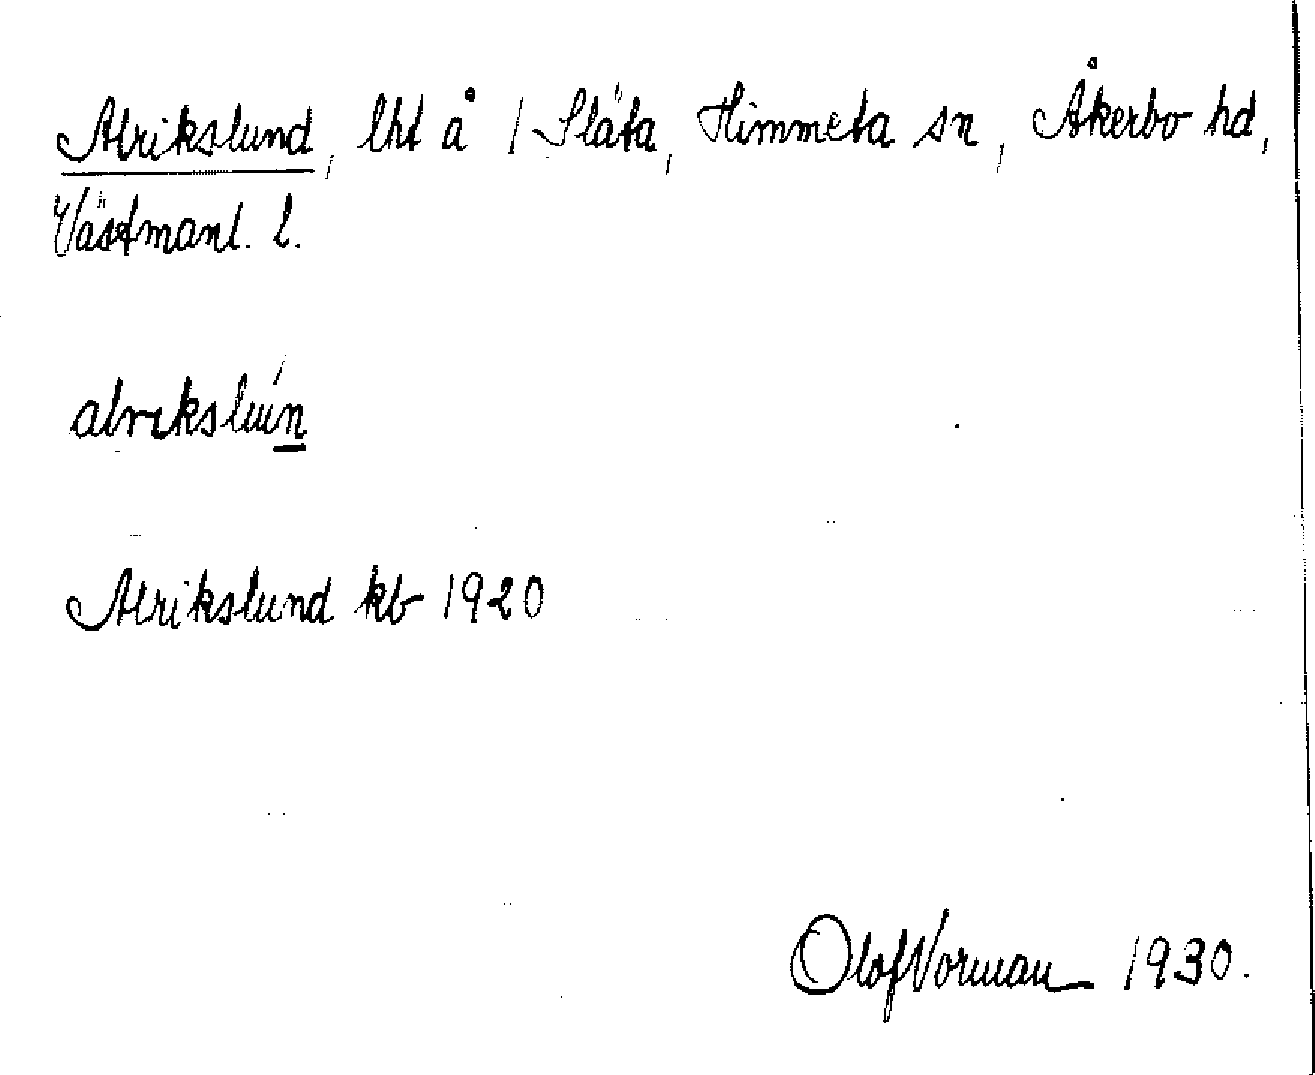 Alrikslund, lht å 1 Släta, Himmeta sn, Åkerbo hd,
Västmanl. l.
alrikslún
Alrikslund kb 1920
Olof Norman 1930.